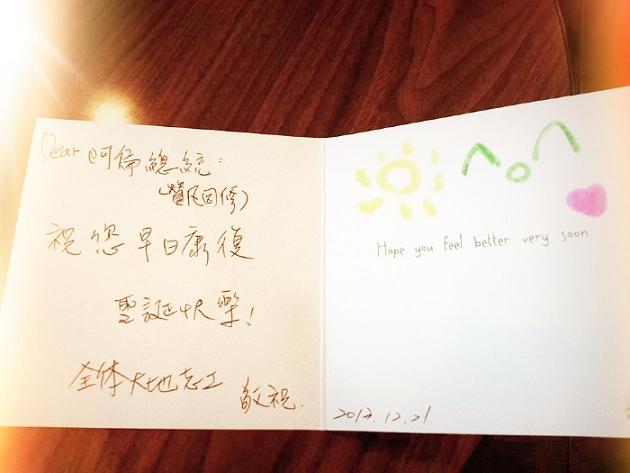 Dear 阿編總統:
祝您早日康復
聖誕快樂!
全体大地志工
敬祝.
Hope you feel better very soon
2012.12.21